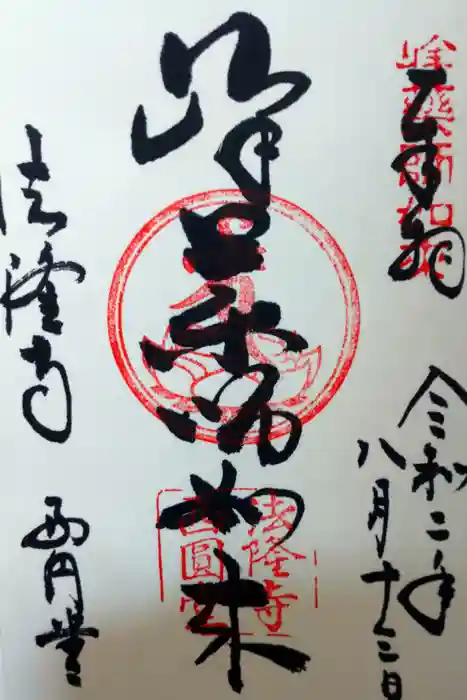 奉拝
峰薬師如来
令和二年
八月十三日
峰薬師如来
法隆寺
西圓堂
法隆寺
西円堂